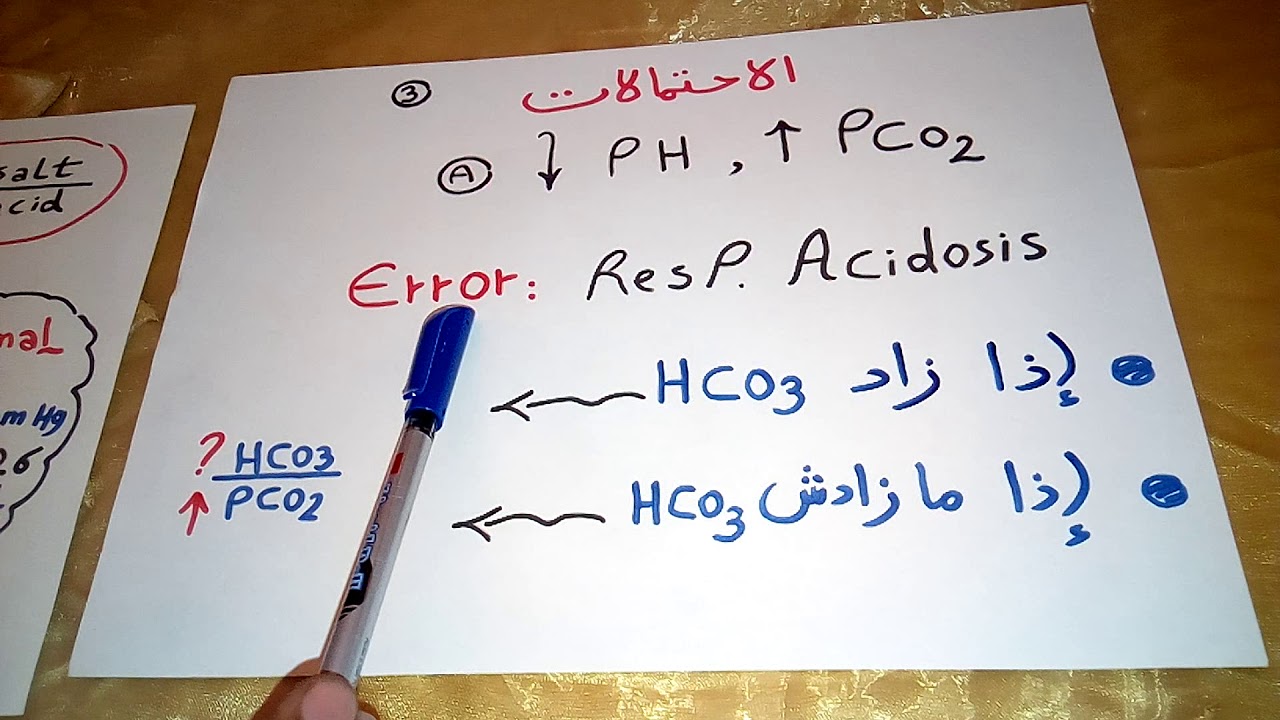 salt
cid
nal
m Hg
26
③ الاحتمالات
Ⓐ ↓ PH , ↑ PCO2
Error: ResP. Acidosis
● إذا زاد HCO3 ←
● إذا مازادش HCO3 ←
? HCO3
↑ PCO2